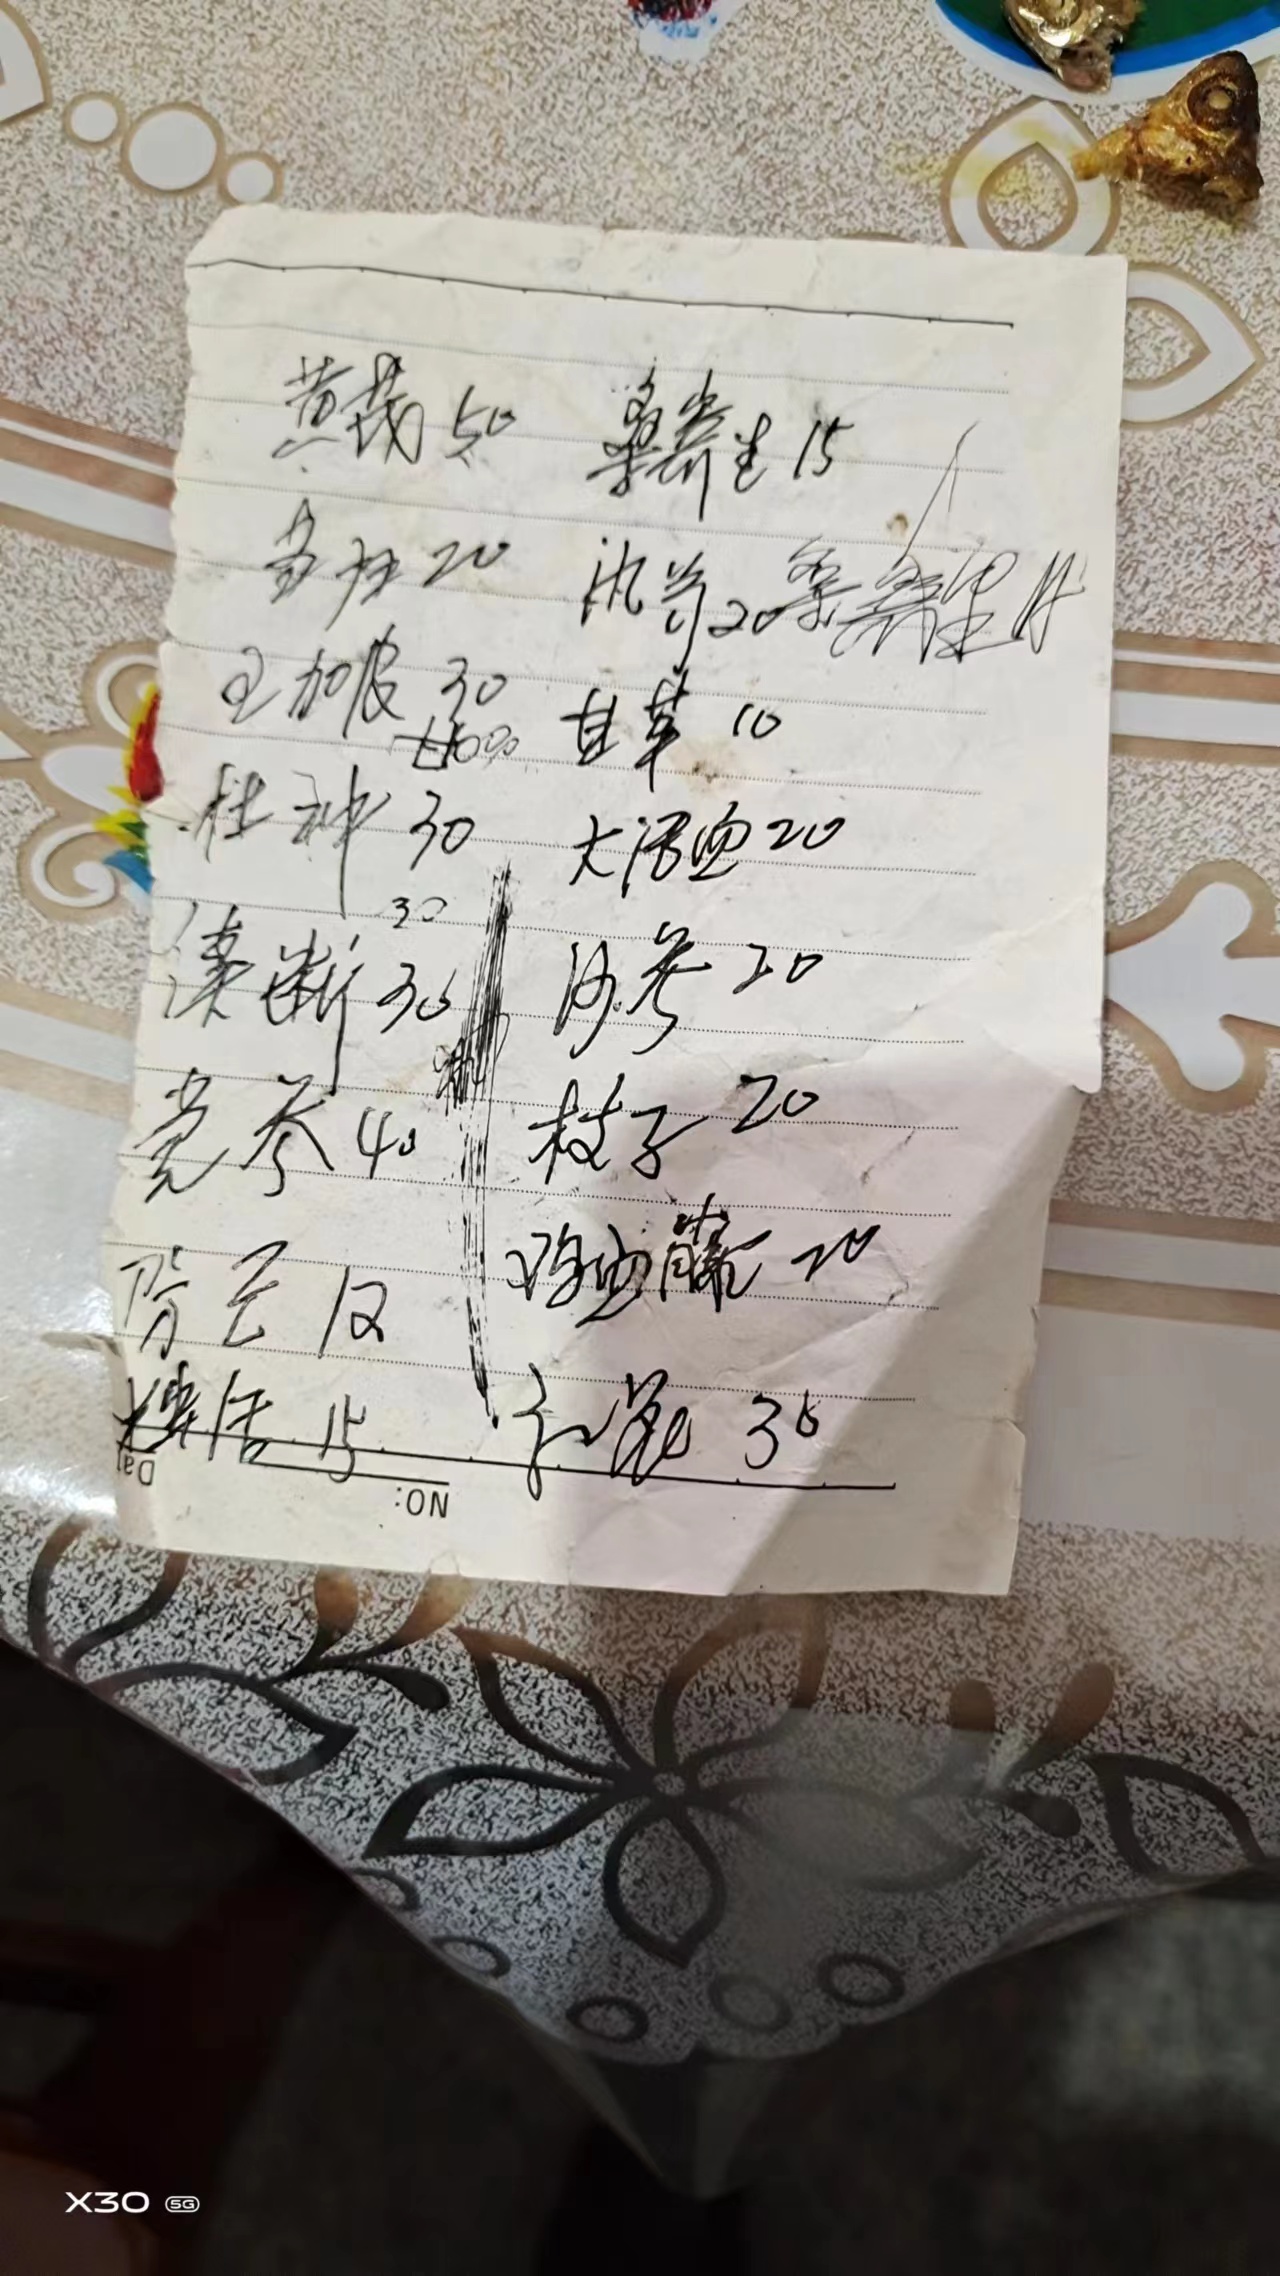 黄芪 50
当归 20
五加皮 30
杜仲 30
30
续断 30
党参 40
防己 12
独活 15
桑寄生 15
20
甘草 10
大活血 20
沙参 20
枝子 20
鸡血藤 20
35
NO:
Da
X30 5G